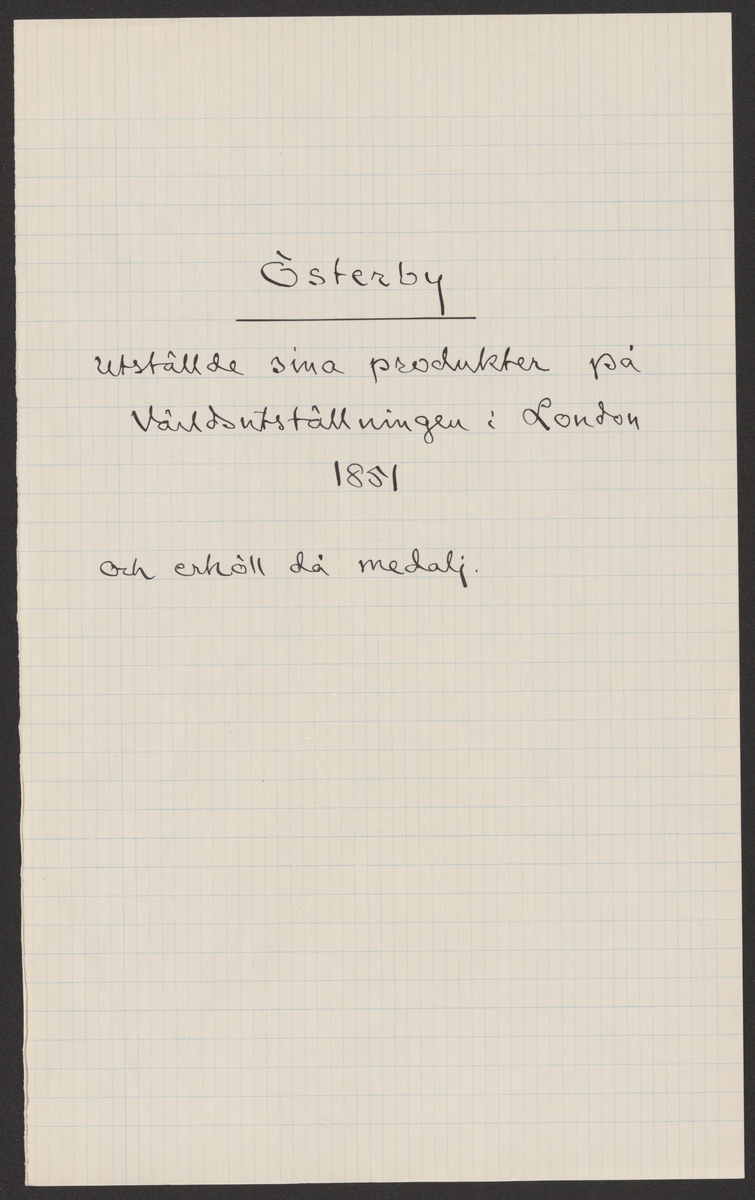 Österby
utställde sina produkter på
Världsutställningen i London
1851
och erhöll då medalj.